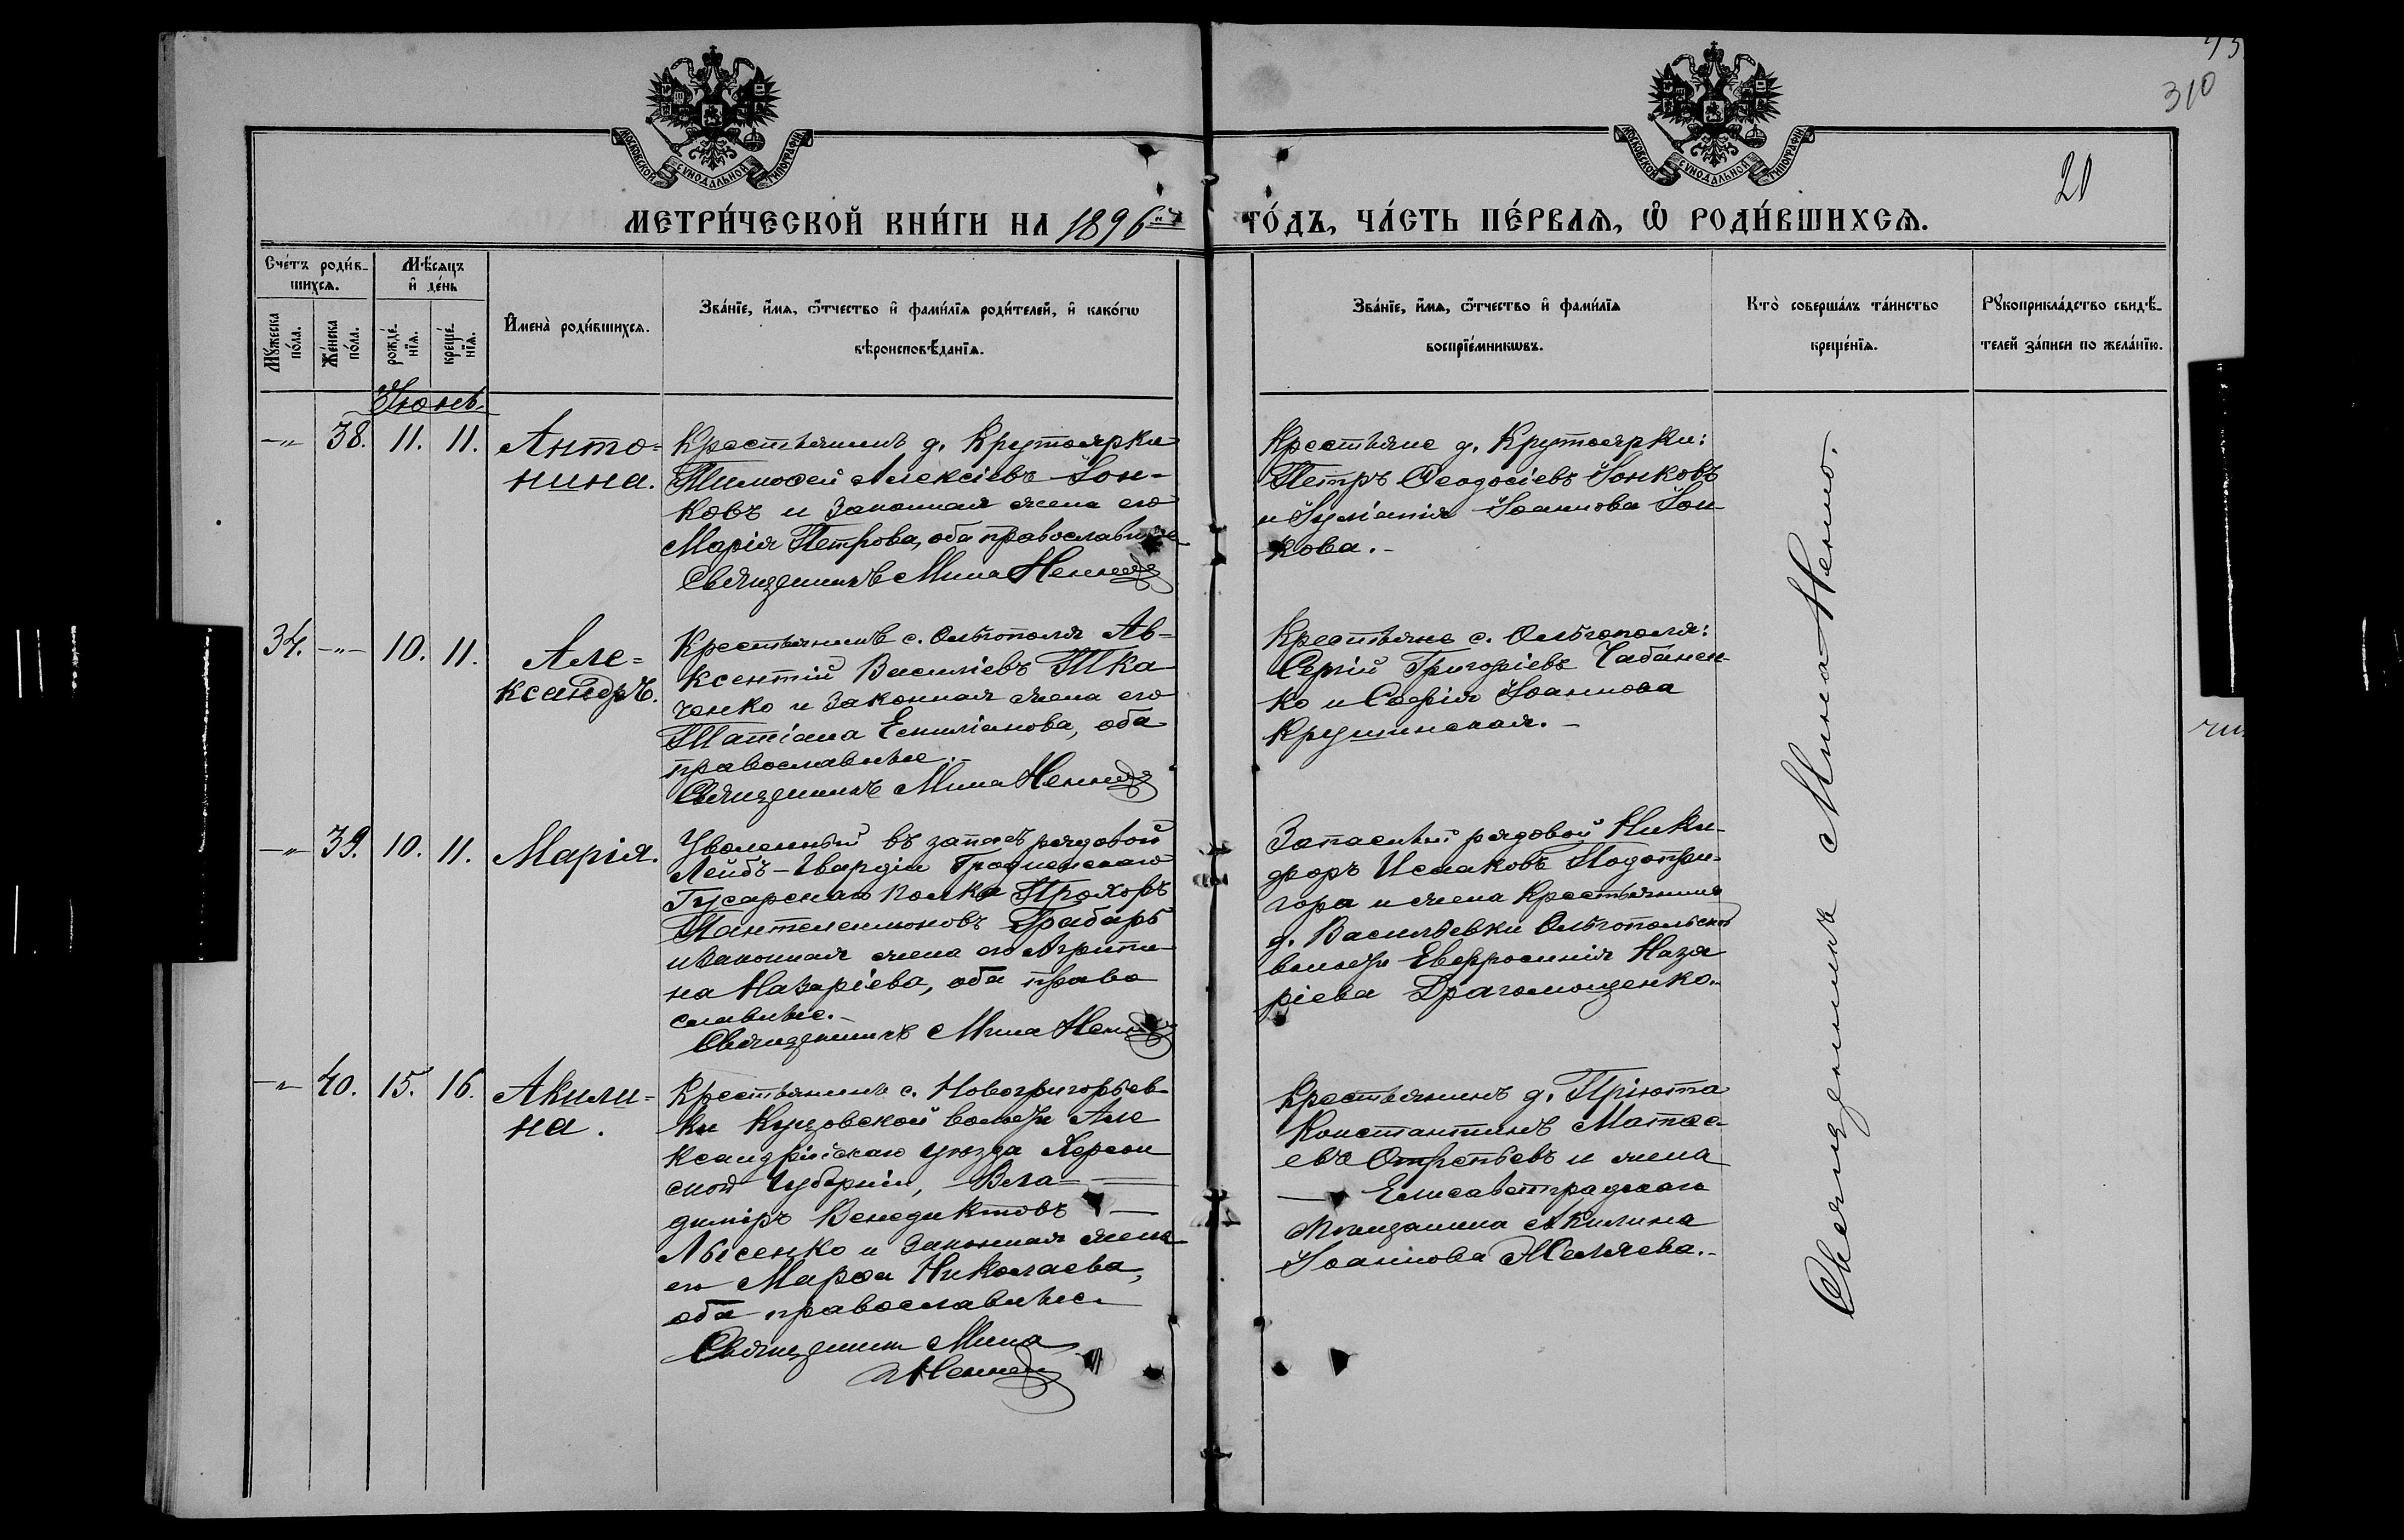 45
310
20
МОСКОВСКОЙ СѴНОДАЛЬНОЙ ТИПОГРАФІИ
МОСКОВСКОЙ СѴНОДАЛЬНОЙ ТИПОГРАФІИ
МЕТРИ́ЧЕСКОЙ КНИ́ГИ НА 1896й
ГО́ДЪ, ЧА́СТЬ ПЕ́РВАЯ, Ѿ РОДИ́ВШИХСЯ.
Сче́тъ роди́в-
шихся.
Мѣ́сяцъ
и де́нь
Мꙋ́жеска
по́ла.
Же́нска
по́ла.
рожде́-
нїя.
креще́-
нїя.
Имена̀ роди́вшихся.
Зва́нїе, и́мя, ѻ҆́тчество и фами́лїя роди́телей, и како́гѡ
вѣроисповѣ́данїя.
Зва́нїе, и́мя, ѻ҆́тчество и фами́лїя
воспрїе́мникѡвъ.
Кто̀ соверша́лъ та́инство
креще́нїя.
Рꙋкоприкла́дство свидѣ́-
телей за́писи по жела́нїю.
Іюнь
-"- 38. 11. 11. Анто=
нина.
Крестьянинъ д. Крутоярки
Тимоѳей Алексіевъ Іон-
ковъ и законная жена его
Марія Петрова, оба православные
Священникъ Мина Ненно
Крестьяне д. Крутоярки:
Петръ Ѳеодосіевъ Іонковъ
и Іуліанія Іоаннова Іон-
кова.-
34. -"- 10. 11. Але=
ксандръ.
Крестьянинъ с. Ольгополя Ав=
ксентій Василіевъ Тка
ченко и законная жена его
Татіана Емиліанова, оба
православные.-
Священникъ Мина Ненно
Крестьяне с. Ольгополя:
Сергій Григоріевъ Чабанен-
ко и Софія Іоаннова
Крушинская.-
-"- 39. 10. 11. Марія.
Уволенный въ запасъ рядовой
Лейбъ-Гвардіи Гродненскаго
Гусарскаго полка Прохоръ
Пантелеимоновъ Грабарь
и законная жена его Агрипи-
на Назаріева, оба право
славные.-
Священникъ Мина Ненно
Запасный рядовой Ники-
форъ Исааковъ Подопри-
гора и жена крестьянина
д. Васильевки Ольгопольской
волости Евфросинія Наза
ріева Драгомощенко.-
-"- 40. 15. 16. Акили=
на.
Крестьянинъ с. Новогригорьев-
ки Куцовской волости Але
ксандрійскаго уѣзда Херсон
ской Губерніи, Вла-
диміръ Венедиктовъ
Лысенко и законная жена
его Марѳа Николаева,
оба православные
Священникъ Мина
Ненно
Крестьянинъ д. Пріюта
Константинъ Матѳе-
евъ Отрепьевъ и жена
Елисаветградскаго
мѣщанина Акилина
Іоаннова Желяева.-
Священникъ Мина Ненно.